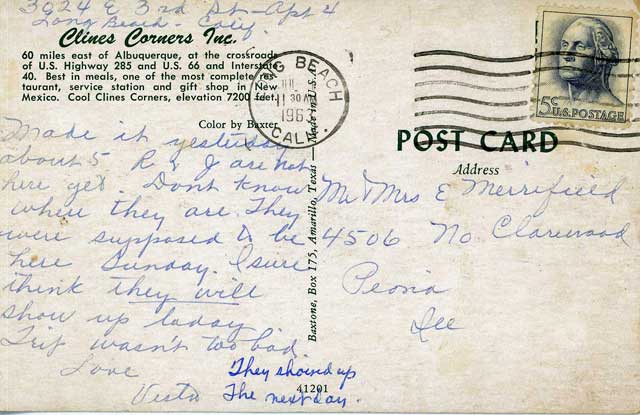 3924 E 3rd St - Apt 4
Long Beach - Calif
Clines Corners Inc.
60 miles east of Albuquerque, at the crossroads
of U.S. Highway 285 and U.S. 66 and Interstate
40. Best in meals, one of the most complete res-
taurant, service station and gift shop in New
Mexico. Cool Clines Corners, elevation 7200 feet.
Color by Baxter
Made it yesterday
about 5 R & J are not
here yet. Dont know
where they are. They
were supposed to be
here Sunday. I sure
think they will
show up today
Trip wasn't too bad
Love
Vesta
They showed up
The next day.
Baxtone, Box 175, Amarillo, Texas — Made in U.S.A.
41201
LONG BEACH
11 30 AM
196
CALIF.
5c U.S. POSTAGE
POST CARD
Address
Mr & Mrs E Merrifield
4506 No. Clarewood
Peoria
Ill